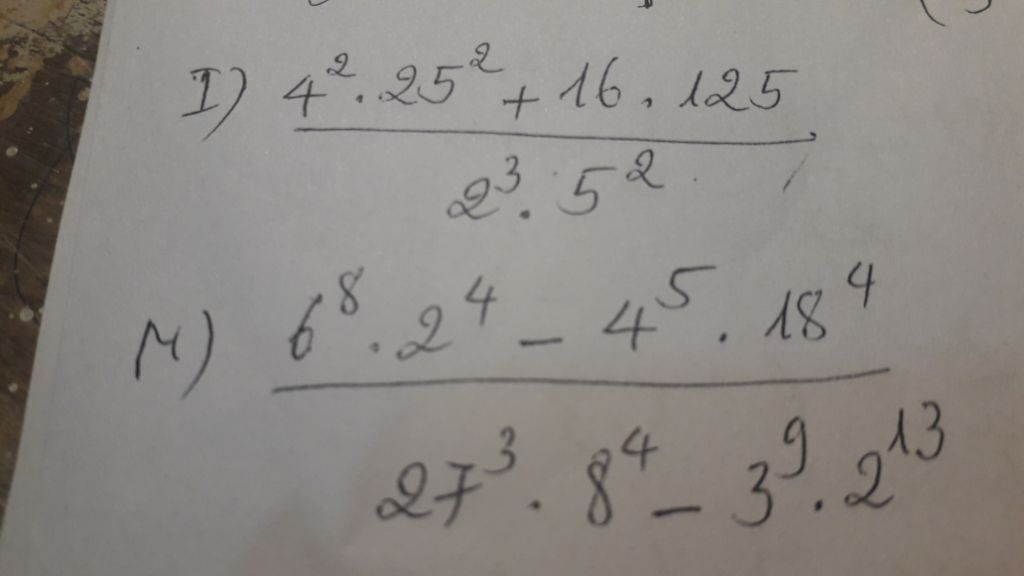 I) 4² . 25² + 16 . 125
2³ . 5²
M) 6⁸ . 2⁴ - 4⁵ . 18⁴
27³ . 8⁴ - 3⁹ . 2¹³